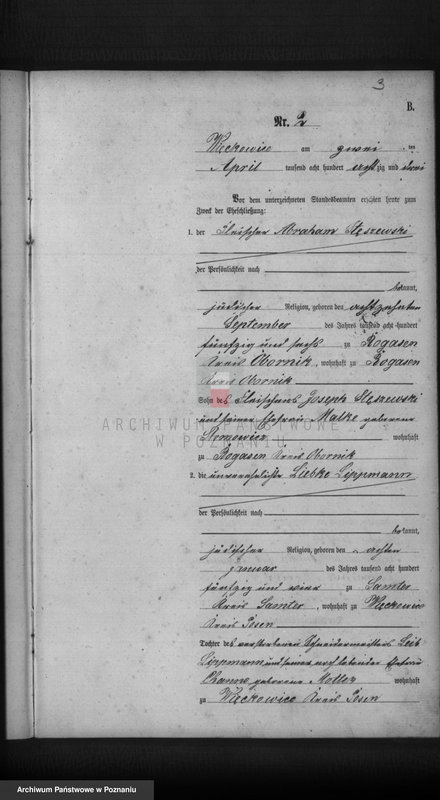 3
B.
Nr. 2
Więckowice am zwei ten
April tausend acht hundert achtzig und drei
Vor dem unterzeichneten Standesbeamten erschien heute zum
Zweck der Eheschließung:
1. der Fleischer Abraham Stęszewski
der Persönlichkeit nach
bekannt,
jüdischer Religion, geboren den achtzehnten
September des Jahres tausend acht hundert
fünfzig und sechs zu Rogasen
Kreis Obornik, wohnhaft zu Rogasen
Kreis Obornik
Sohn des Fleischers Joseph Stęszewski
und seiner Ehefrau Malke geborene
wohnhaft
zu Rogasen Kreis Obornik
2. die unverehelichte Liebke Lippmann
der Persönlichkeit nach
bekannt,
jüdischer Religion, geboren den achten
Januar des Jahres tausend acht hundert
fünfzig und vier zu Samter
Kreis Samter, wohnhaft zu Więckowice
Kreis Posen
Tochter des verstorbenen Schneidermeisters Leib
Lippmann und seiner noch lebenden Ehefrau
Channe geborene wohnhaft
zu Więckowice Kreis Posen
ARCHIWUM PAŃSTWOWE
W POZNANIU
Archiwum Państwowe w Poznaniu